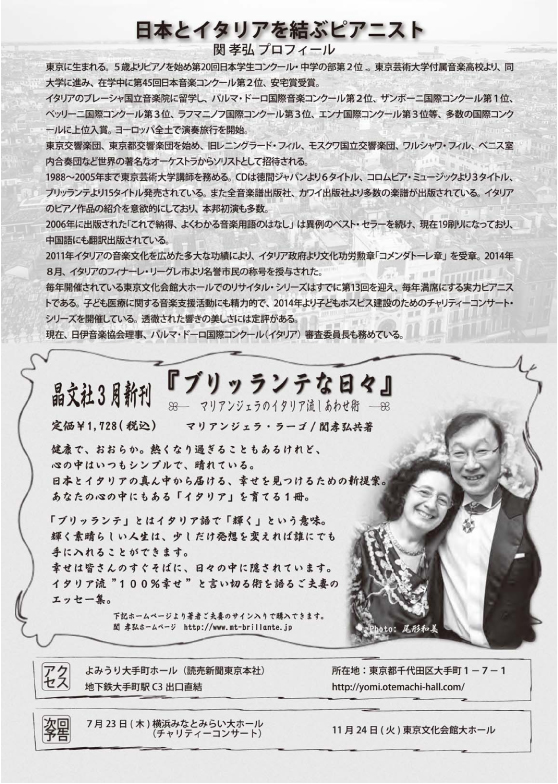 日本とイタリアを結ぶピアニスト
関 孝弘 プロフィール
東京に生まれる。５歳よりピアノを始め第20回日本学生コンクール・中学の部第２位 。東京芸術大学付属音楽高校より、同
大学に進み、在学中に第45回日本音楽コンクール第２位、安宅賞受賞。
イタリアのブレーシャ国立音楽院に留学し、パルマ・ドーロ国際音楽コンクール第２位、ザンボーニ国際コンクール第１位、
ベッリーニ国際コンクール第３位、ラフマニノフ国際コンクール第３位、エンナ国際コンクール第３位等、多数の国際コンク
ールに上位入賞。ヨーロッパ全土で演奏旅行を開始。
東京交響楽団、東京都交響楽団を始め、旧レニングラード・フィル、モスクワ国立交響楽団、ワルシャワ・フィル、ベニス室
内合奏団など世界の著名なオーケストラからソリストとして招待される。
1988～2005年まで東京芸術大学講師を務める。CDは徳間ジャパンより６タイトル、コロムビア・ミュージックより３タイトル、
ブリッランテより15タイトル発売されている。また全音楽譜出版社、カワイ出版社より多数の楽譜が出版されている。イタリア
のピアノ作品の紹介を意欲的にしており、本邦初演も多数。
2006年に出版された「これで納得、よくわかる音楽用語のはなし」は異例のベスト・セラーを続け、現在19刷りになっており、
中国語にも翻訳出版されている。
2011年イタリアの音楽文化を広めた多大な功績により、イタリア政府より文化功労勲章「コメンダトーレ章」を受章。2014年
８月、イタリアのフィナーレ・リーグレ市より名誉市民の称号を授与された。
毎年開催されている東京文化会館大ホールでのリサイタル・シリーズはすでに第13回を迎え、毎年満席にする実力ピアニス
トである。子ども医療に関する音楽支援活動にも精力的で、2014年より子どもホスピス建設のためのチャリティーコンサート・
シリーズを開催している。透徹された響きの美しさには定評がある。
現在、日伊音楽協会理事、パルマ・ドーロ国際コンクール（イタリア） 審査委員長も務めている。
晶文社３月新刊 『ブリッランテな日々』
マリアンジェラのイタリア流しあわせ術
定価￥1,728(税込) マリアンジェラ・ラーゴ/関孝弘共著
健康で、おおらか。熱くなり過ぎることもあるけれど、
心の中はいつもシンプルで、晴れている。
日本とイタリアの真ん中から届ける、幸せを見つけるための新提案。
あなたの心の中にもある「イタリア」を育てる１冊。
「ブリッランテ」とはイタリア語で「輝く」という意味。
輝く素晴らしい人生は、少しだけ発想を変えれば誰にでも
手に入れることができます。
幸せは皆さんのすぐそばに、日々の中に隠されています。
イタリア流 "１００％幸せ" と言い切る術を語るご夫妻の
エッセー集。
下記ホームページより著者ご夫妻のサイン入りで購入できます。
関 孝弘ホームページ http://www.mt-brillante.jp
Photo: 尾形和美
アクセス
よみうり大手町ホール（読売新聞東京本社） 所在地：東京都千代田区大手町１－７－１
地下鉄大手町駅 C3 出口直結 http://yomi.otemachi-hall.com/
次回予告
７月 23 日 ( 木 ) 横浜みなとみらい大ホール 11 月 24 日 ( 火 ) 東京文化会館大ホール
（チャリティーコンサート）